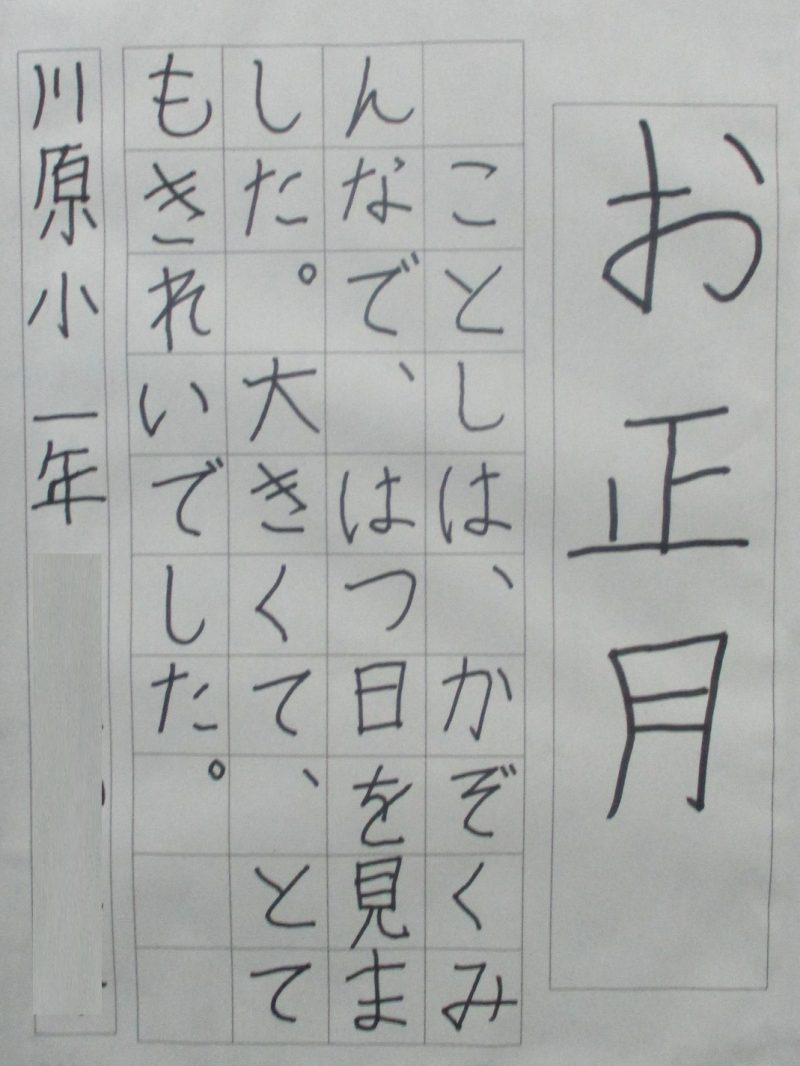 お正月
ことしは、かぞくみ
んなで、はつ日を見ま
した。大きくて、とて
もきれいでした。
川原小 一年